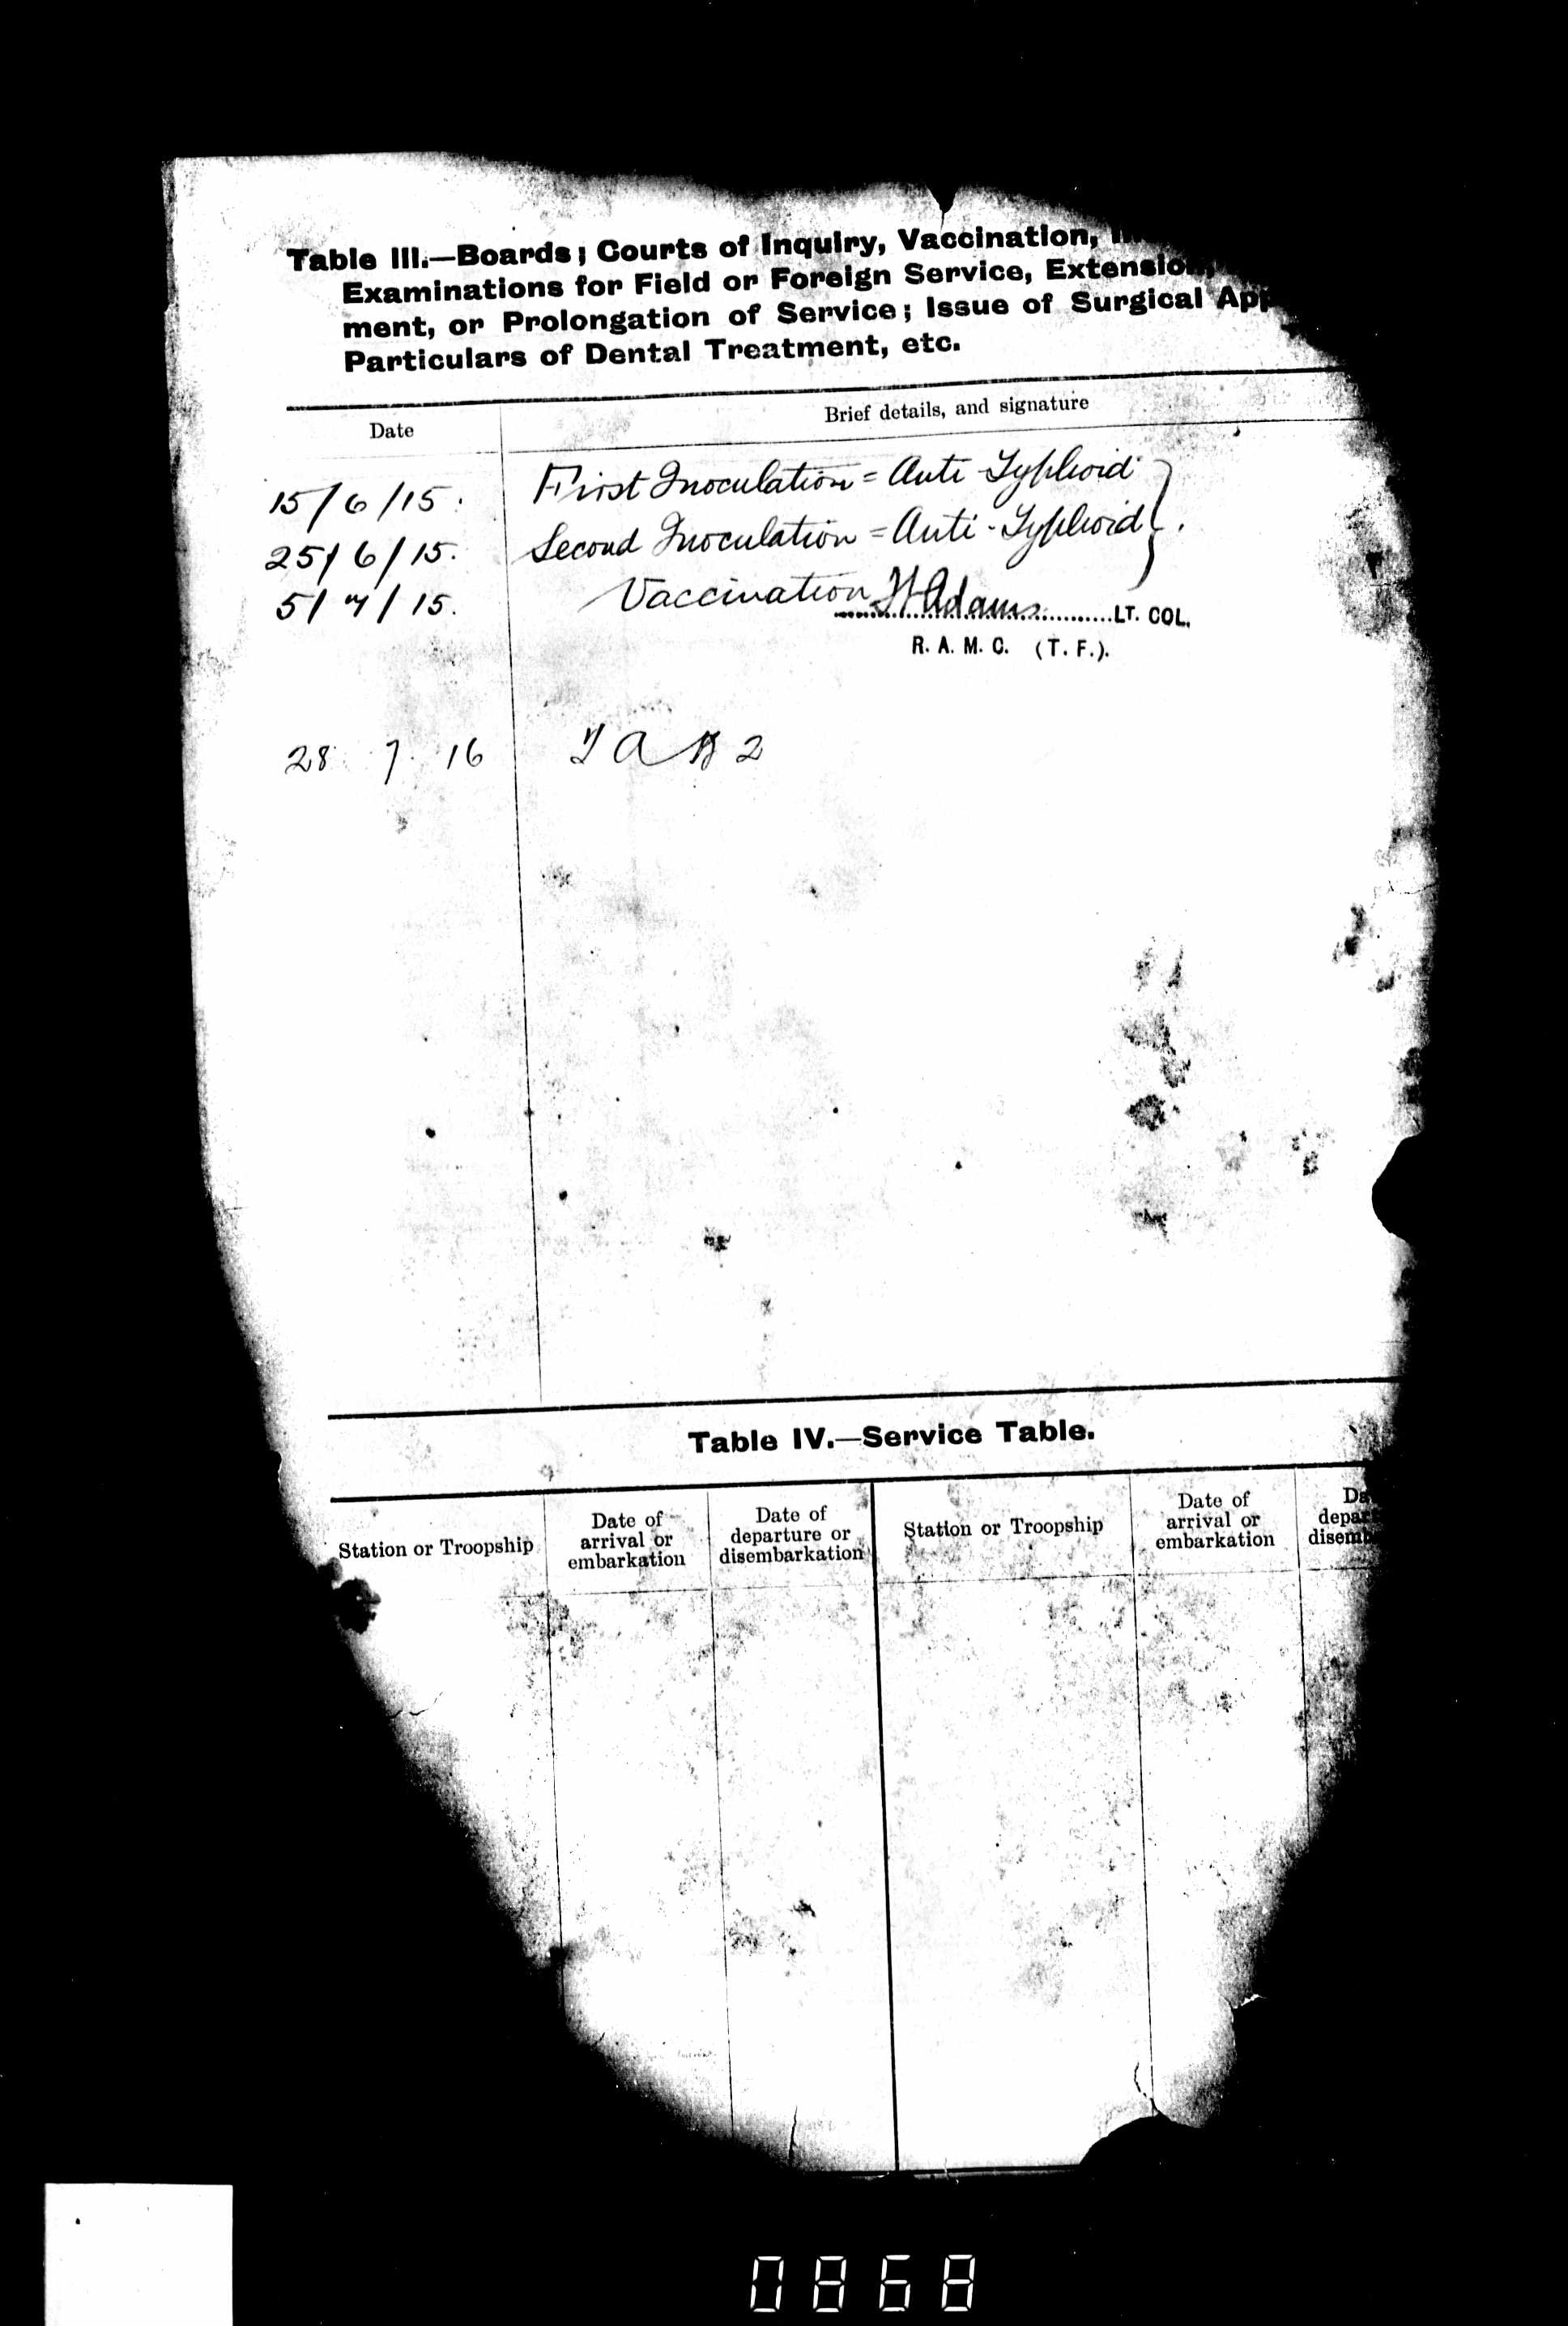 Table III.—Boards; Courts of Inquiry, Vaccination,
Examinations for Field or Foreign Service, Extension,
ment, or Prolongation of Service; Issue of Surgical App
Particulars of Dental Treatment, etc.
Date
Brief details, and signature
15/6/15. First Inoculation = Anti-Typhoid
25/6/15. Second Inoculation = Anti-Typhoid
5/7/15. Vaccination Adams LT. COL.
R. A. M. C. (T. F.).
28 7. 16 T A B 2
Table IV.—Service Table.
Station or Troopship
Date of
arrival or
embarkation
Date of
departure or
disembarkation
Station or Troopship
Date of
arrival or
embarkation
Da
depar
disemb
0868